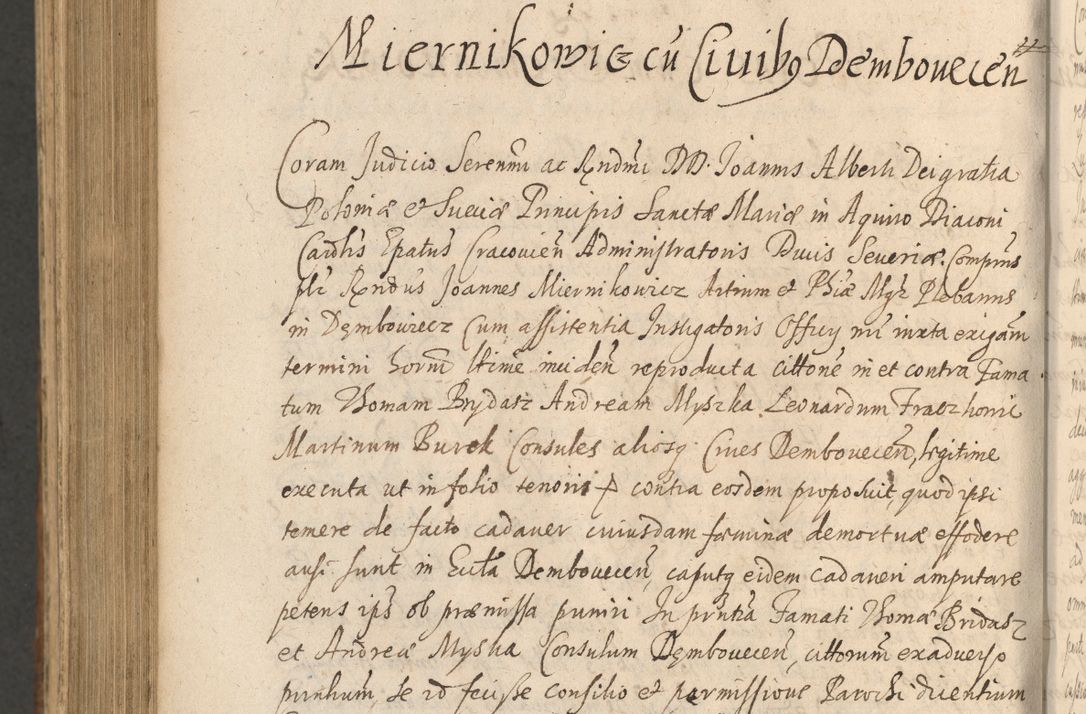 Miernikowic cu̅ Ciuibꝰ Dembouecen̅
Coram Judicio Serenm̅i ac Rndm̅i DD. Ioannis Alberti Dei gratia
Poloniæ et Sueciæ Principis Sanctæ Mariæ in Aquiro Diaconi
Card̅lis Ep̅atus Cracouien̅ Administratoris Ducis Seueriæ. Comprn̅s
p̅lr Rndus Joannes Miernikowicz Artium et Ph̅iæ Mgr̅ Plebanus
in Dembowiecz Cum assistentia Instigatoris Officij mi̅ iuxta exigam̅
termini horm̅ ltime̅ inciden̅ reproducta citto̅ne in et contra Fama
tum Thomam Brydasz Andream Myszka Leonardum
Martinum Burek Consules aliosq̨ Ciues Dembouecen̅, legitime
executa ut in folio tenoris contra eosdem proposuit, quod ipsi
temere de facto cadauer cuiusdam fæminæ demortuæ effodere
ausi sunt in Eccl̅a Dembouecen̅, caputq̨ eidem cadaueri amputare
petens ip̅s ob præmissa puniri In prn̅tia Famati Thomæ Bridasz
et Andreæ Myszka Consulum Dembouecen̅, cittorum̅ ex aduerso
prnn̅tium, se id fecisse consilio et permissione Parochi dicentium